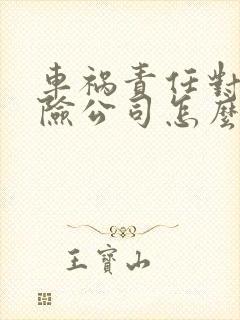 車禍責任對
險公司怎麼
王寶山